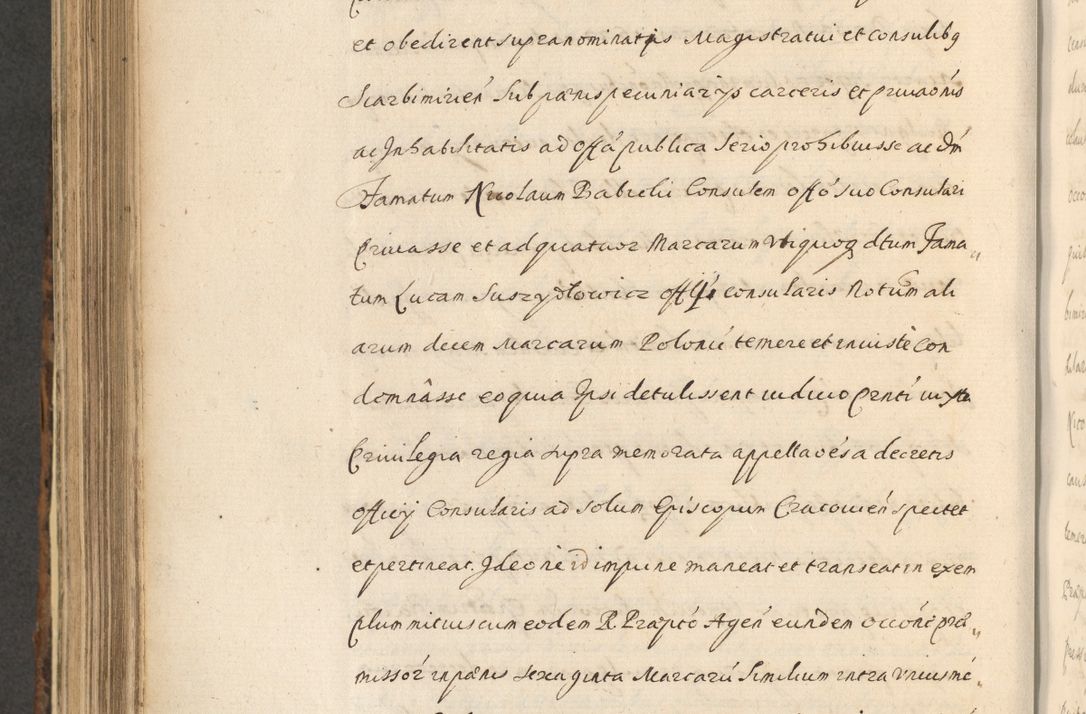 et obedirent supranominatis Magistratui et consulibq
Scarbimirien̄ Sub pænis pecuniarÿs carceris et priuaōnis
ac Inhabilitatis ad offā publica serio prohibuisse ac dm̄
Famatum Nicolaum Babielii Consulem offō suo Consulari
Priuasse et ad quatuor Marcarum utiquoq dtum Fama„
tum Lucam Suszydlowicz offÿ consularis Notum ali
arum decem Marcarum Polonic̄ temere et iniustè con
demnâsse eo quia Ipsi detulissent iudicio Prnti iuxta
Priuilegia regia supra memorata appellaōes a decretis
officÿ Consularis ad solum Episcopum Cracouien̄ spectet
et pertineat. Ideo nè id impune maneat et transeat in exem
plum mitius cum eodem R Præptō Agen̄ eundem occōne præ„
missor̄ in pænis sexaginta Marcarū Similium intra unius mē„